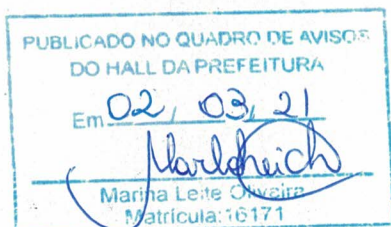 PUBLICADO NO QUADRO DE AVISOS
DO HALL DA PREFEITURA
Em 02, 03, 21
Marina Leite Oliveira
Matrícula: 16171